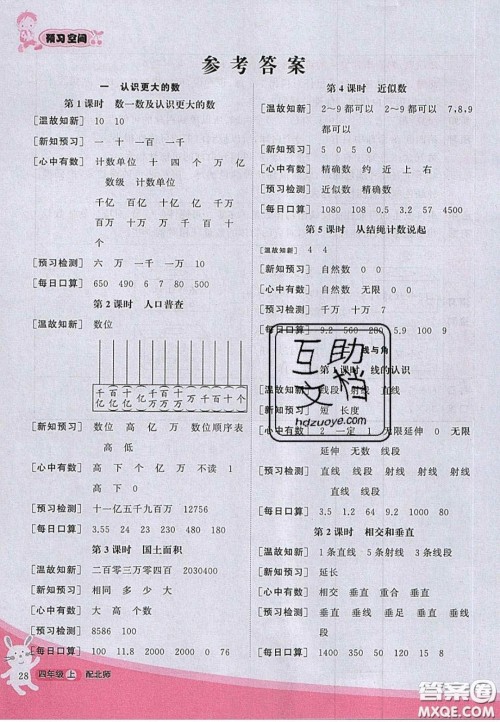 预习空间
参考答案
一 认识更大的数
第1课时 数一数及认识更大的数
[温故知新] 10 10
[新知预习] 一 十 一百 一千
[心中有数] 计数单位 十 四个 万 亿
数级 计数单位
千亿 百亿 十亿 亿 千万
百万 十万 万 千 百 十
个
[预习检测] 六 万 一千 一万
[每日口算] 650 490 6 7 80 500
第2课时 人口普查
[温故知新] 数位
千亿 百亿 十亿 亿 千万 百万 十万 万 千 百 十 个
[新知预习] 数位 高 亿 万 数位顺序表
高 低
[心中有数] 高 下 个 亿 万 不读 1
高 下
[预习检测] 十一亿五千九百万 12756
[每日口算] 3.55 24 23 230 480 180
第3课时 国土面积
[温故知新] 二百零三万零四百 2030400
[新知预习] 相同 多少 大
[心中有数] 大 高 个数
[预习检测] 8586 100
[每日口算] 14 24 48 88 1000 1000
28 四年级 上 配北师
第4课时 近似数
[温故知新] 2～9都可以 2～9都可以 7,8,9
都可以
[新知预习] 精确 近似
[心中有数] 精确数 约 近 上 右
[预习检测] 近似数 精确数
[每日口算] 1080 108 0.5 3.2 57 4500
第5课时 从结绳计数说起
[温故知新] 4 4
[新知预习] 自然数 0 0
[心中有数] 自然数 无限 0 0
[预习检测] 千万 十万 7
[每日口算] 9.2 560 280 5.9 100 9
线与角
第1课时 线的认识
[温故知新] 线段 射线 直线
[新知预习] 短 长度
[心中有数] 2 一定 1 无限延伸 0 无限
延伸 无数 线段
[预习检测] 直线 线段 射线 射线 射线
直线 线段
[每日口算] 3.5 1.2 64 9.2 1000 80
第2课时 相交和垂直
[温故知新] 1条直线 5条线段 4条射线
[新知预习] 延长
[心中有数] 相交 垂直 重合 垂直
[预习检测] 相交 垂直 垂直 垂直 垂直
垂直
[每日口算] 150 120 50 450 430 120
互助
文档
hdzuoye.com
答案圈
MXQE.COM